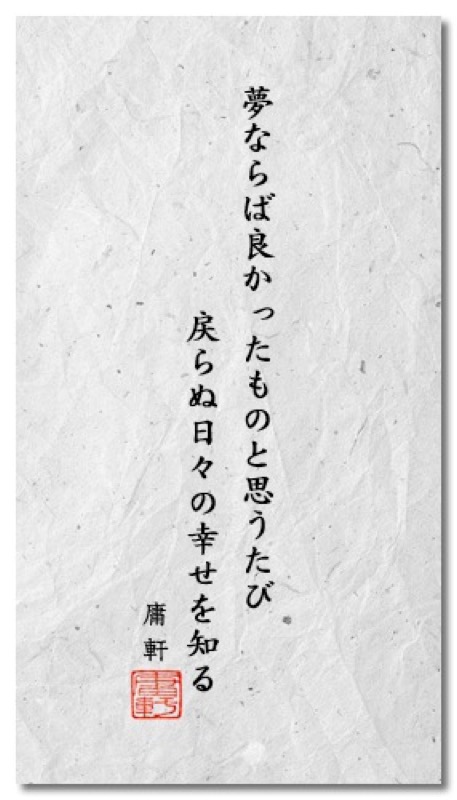 夢ならば良かったものと思うたび
戻らぬ日々の幸せを知る
庸軒
庸軒